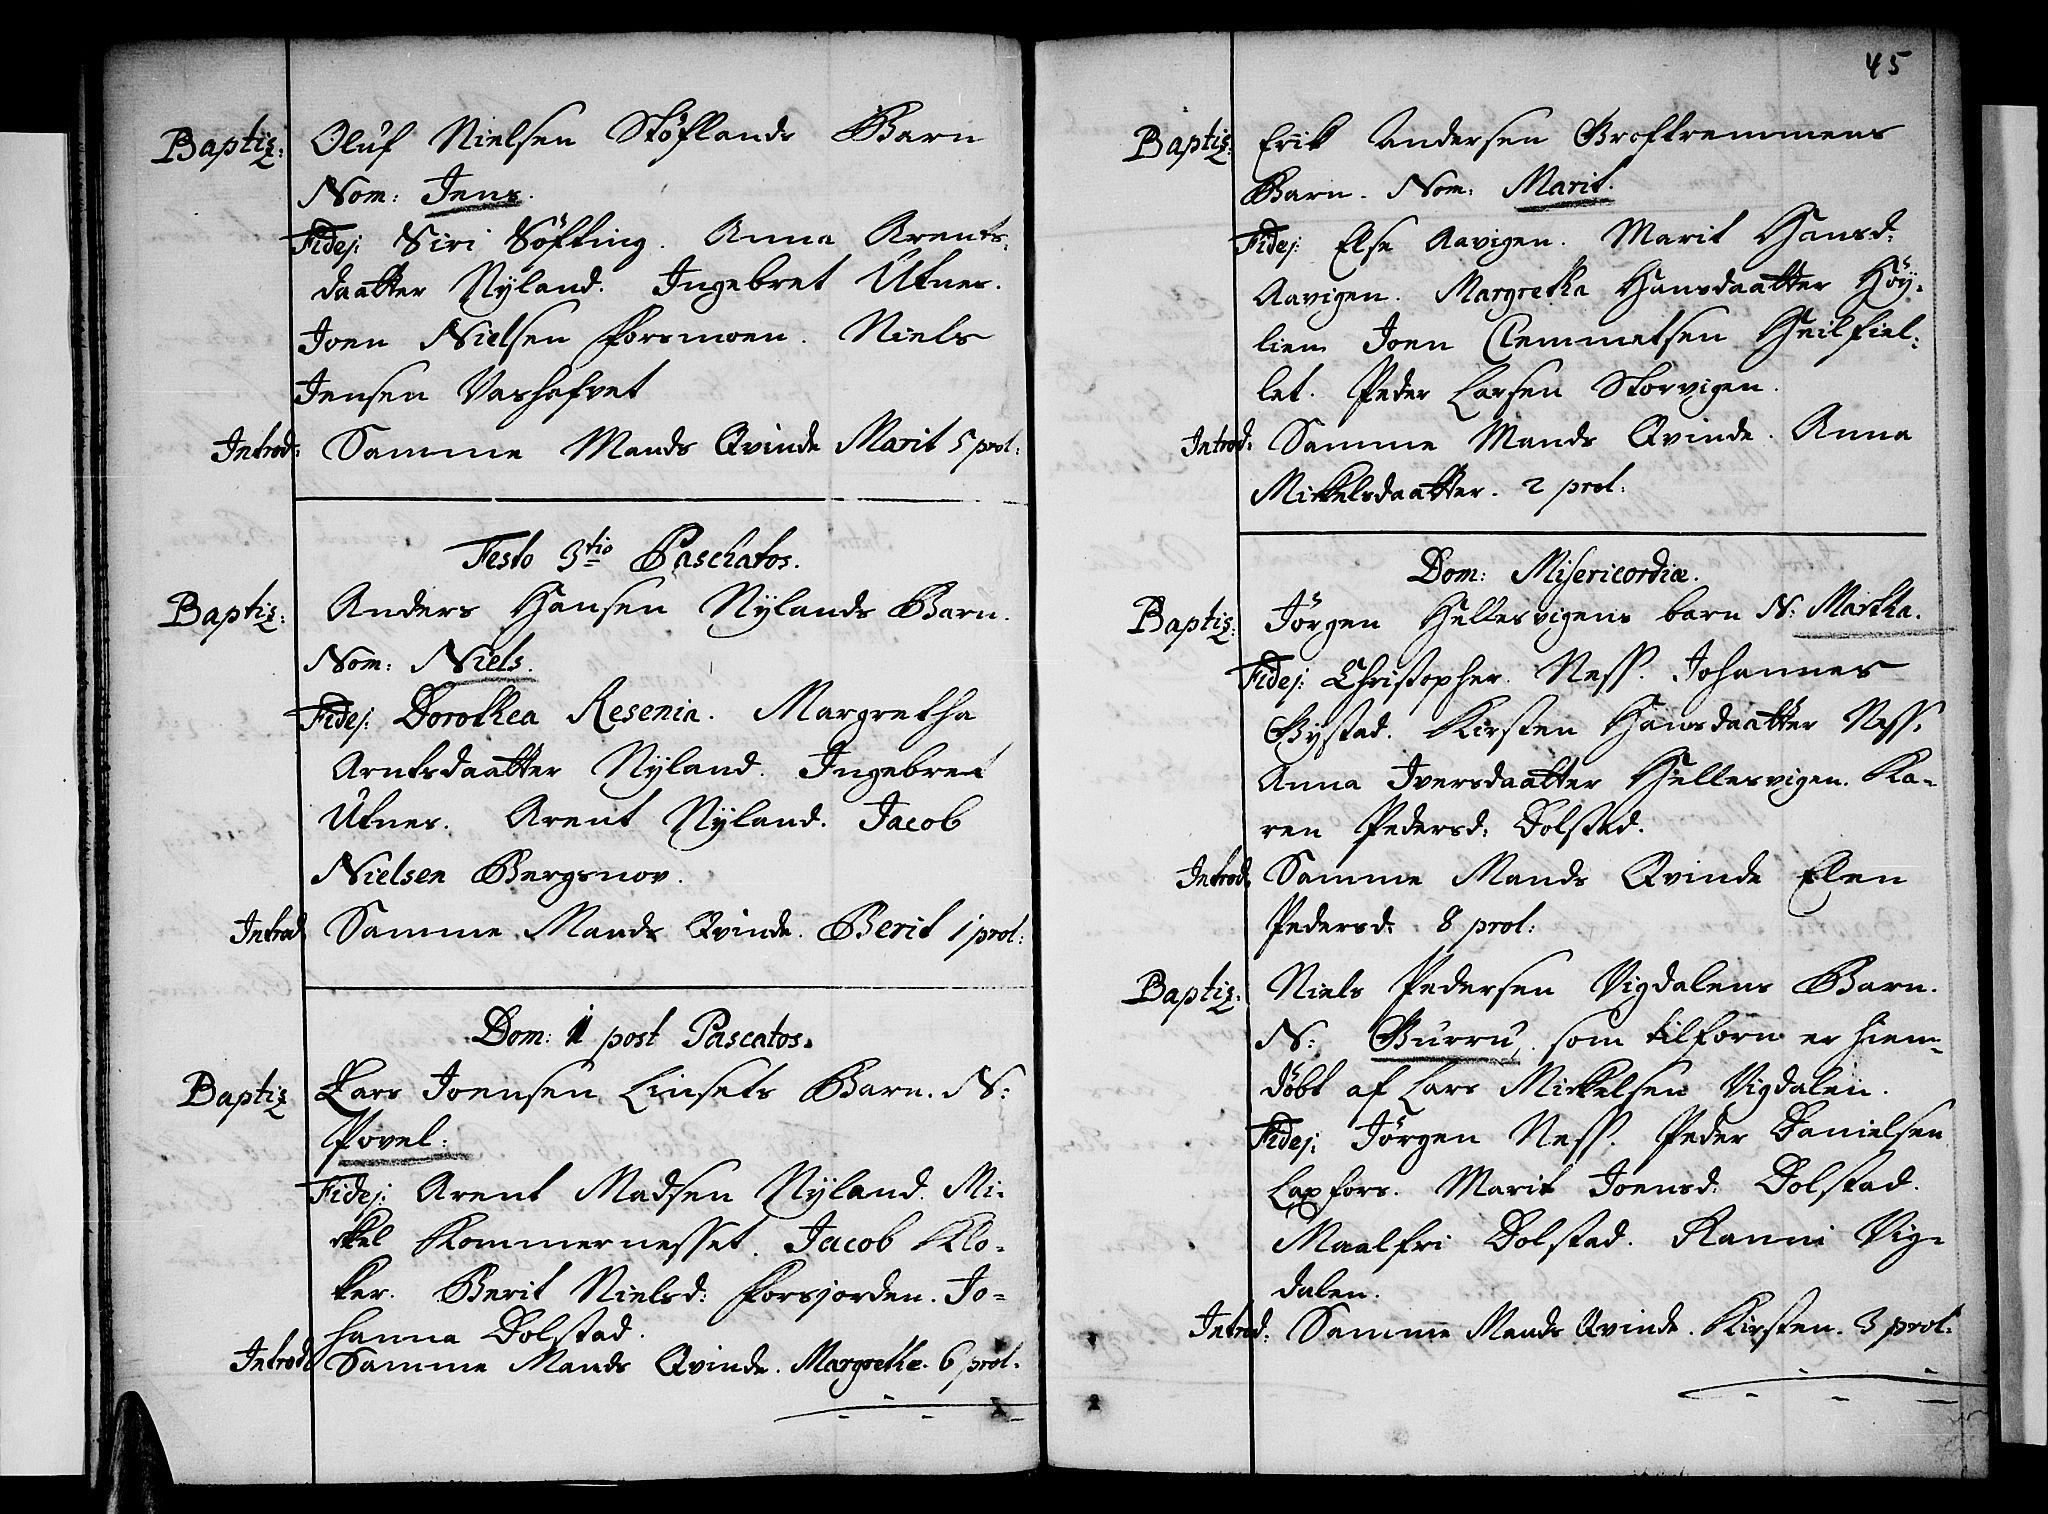 Baptiz: Oluf Nielsen Stöflands Barn
Nom: Jens.
Fidej: Siri Söfting. Anna Arents-
daatter Nÿland. Ingebret Utnes.
Joen Nielsen Forsmoen. Niels
Jensen Vashafvet
Introd: Samme Mands Qvinde Marit 5 prol:
Festo 3tio Paschatos.
Baptiz: Anders Hansen Nÿlands Barn.
Nom: Niels.
Fidej: Dorothea Resenia. Margretha
Arntsdaatter Nÿland. Ingebret
Utnes. Arent Nÿland. Jacob
Nielsen Bergsnov.
Introd: Samme Mands Qvinde. Berit 1 prol:
Dom: 1 post Pascatos.
Baptiz Lars Joensen Linsets Barn. N:
Povel.
Fidej: Arent Madsen Nÿland. Mi-
ckel Kommernesset. Jacob Klo-
ker. Berit Nielsd: Forsjorden. Jo-
hanna Dolstad.
Introd: Samme Mands Qvinde. Margrethe. 6 prol.
45
Baptiz: Erik Andersen Groftremmens
Barn. Nom: Marit.
Fidej: Else Aavigen. Marit Hansd:
Aavigen. Margretha Hansdaatter Höÿ-
lien Joen Clemmetsen Heilfiel-
let. Peder Larsen Storvigen.
Introd: Samme Mands Qvinde. Anna
Mickelsdaatter. 2 prol:
Dom: Misericordiæ.
Baptiz: Jörgen Hellesvigens barn N: Martha.
Fidej: Christopher Ness. Johannes
Bÿstad. Kirsten Hansdaatter Ness.
Anna Iversdaatter Hellesvigen. Ka-
ren Pedersd: Dolstad.
Introd. Samme Mands Qvinde Elen
Pedersd: 8 prol:
Baptiz: Niels Pedersen Vigdalens Barn.
N: Gurru, som tilforn er hiem-
döbt af Lars Mickelsen Vigdalen.
Fidej: Jörgen Ness. Peder Danielsen
Laxfors. Marit Joensd: Dolstad.
Maalfri Dolstad. Ranni Vig-
dalen.
Introd: Samme Mands Qvinde. Kirsten. 3 prol: